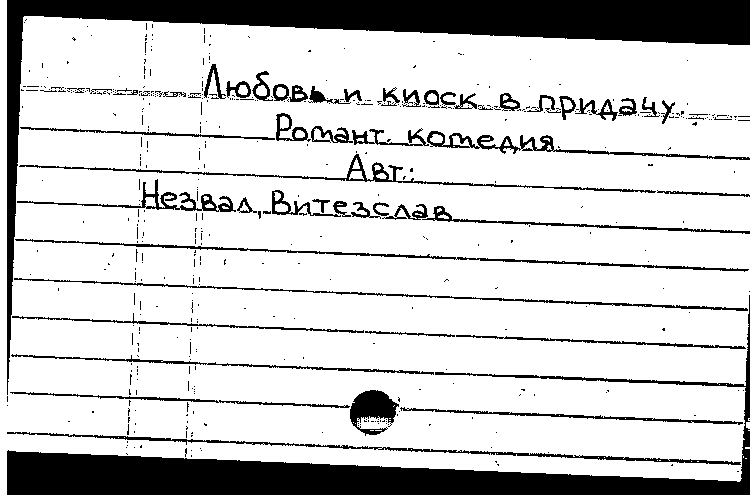 Любовь и киоск в придачу.
Романт. комедия
Авт.:
Незвал, Витезслав